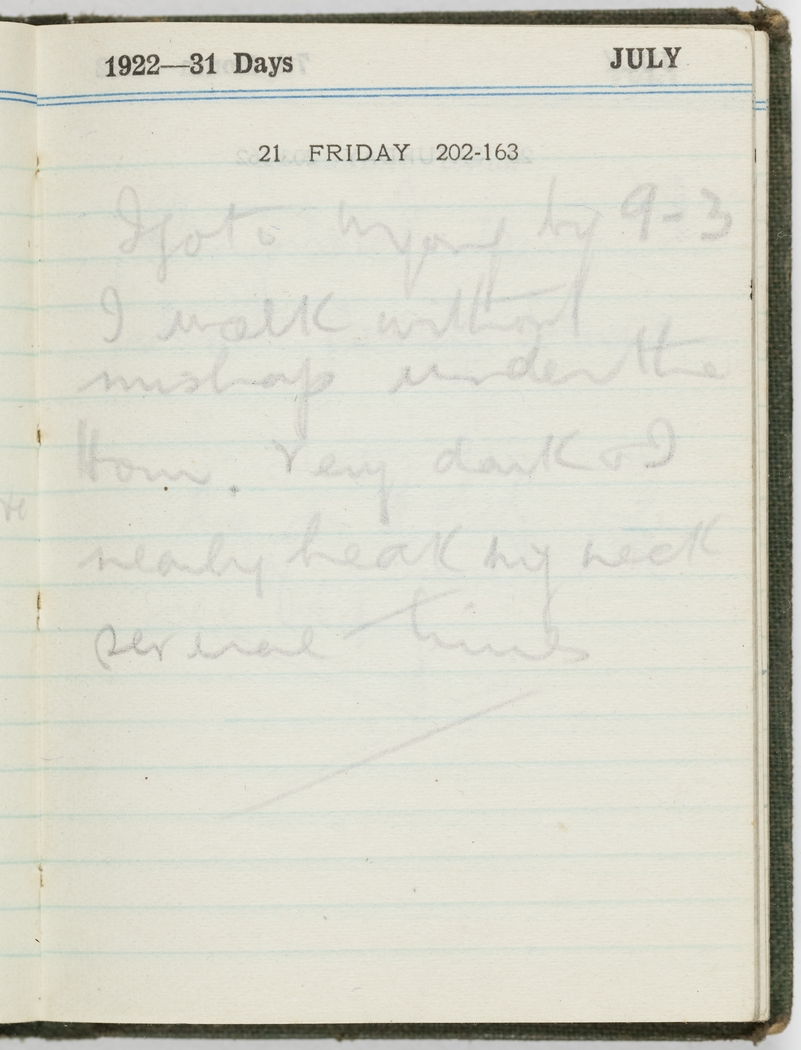 1922—31 Days JULY
21 FRIDAY 202-163
I go to Wyong by 9-3
I walk without
mishap under the
hour. Very dark & I
nearly break my neck
several times